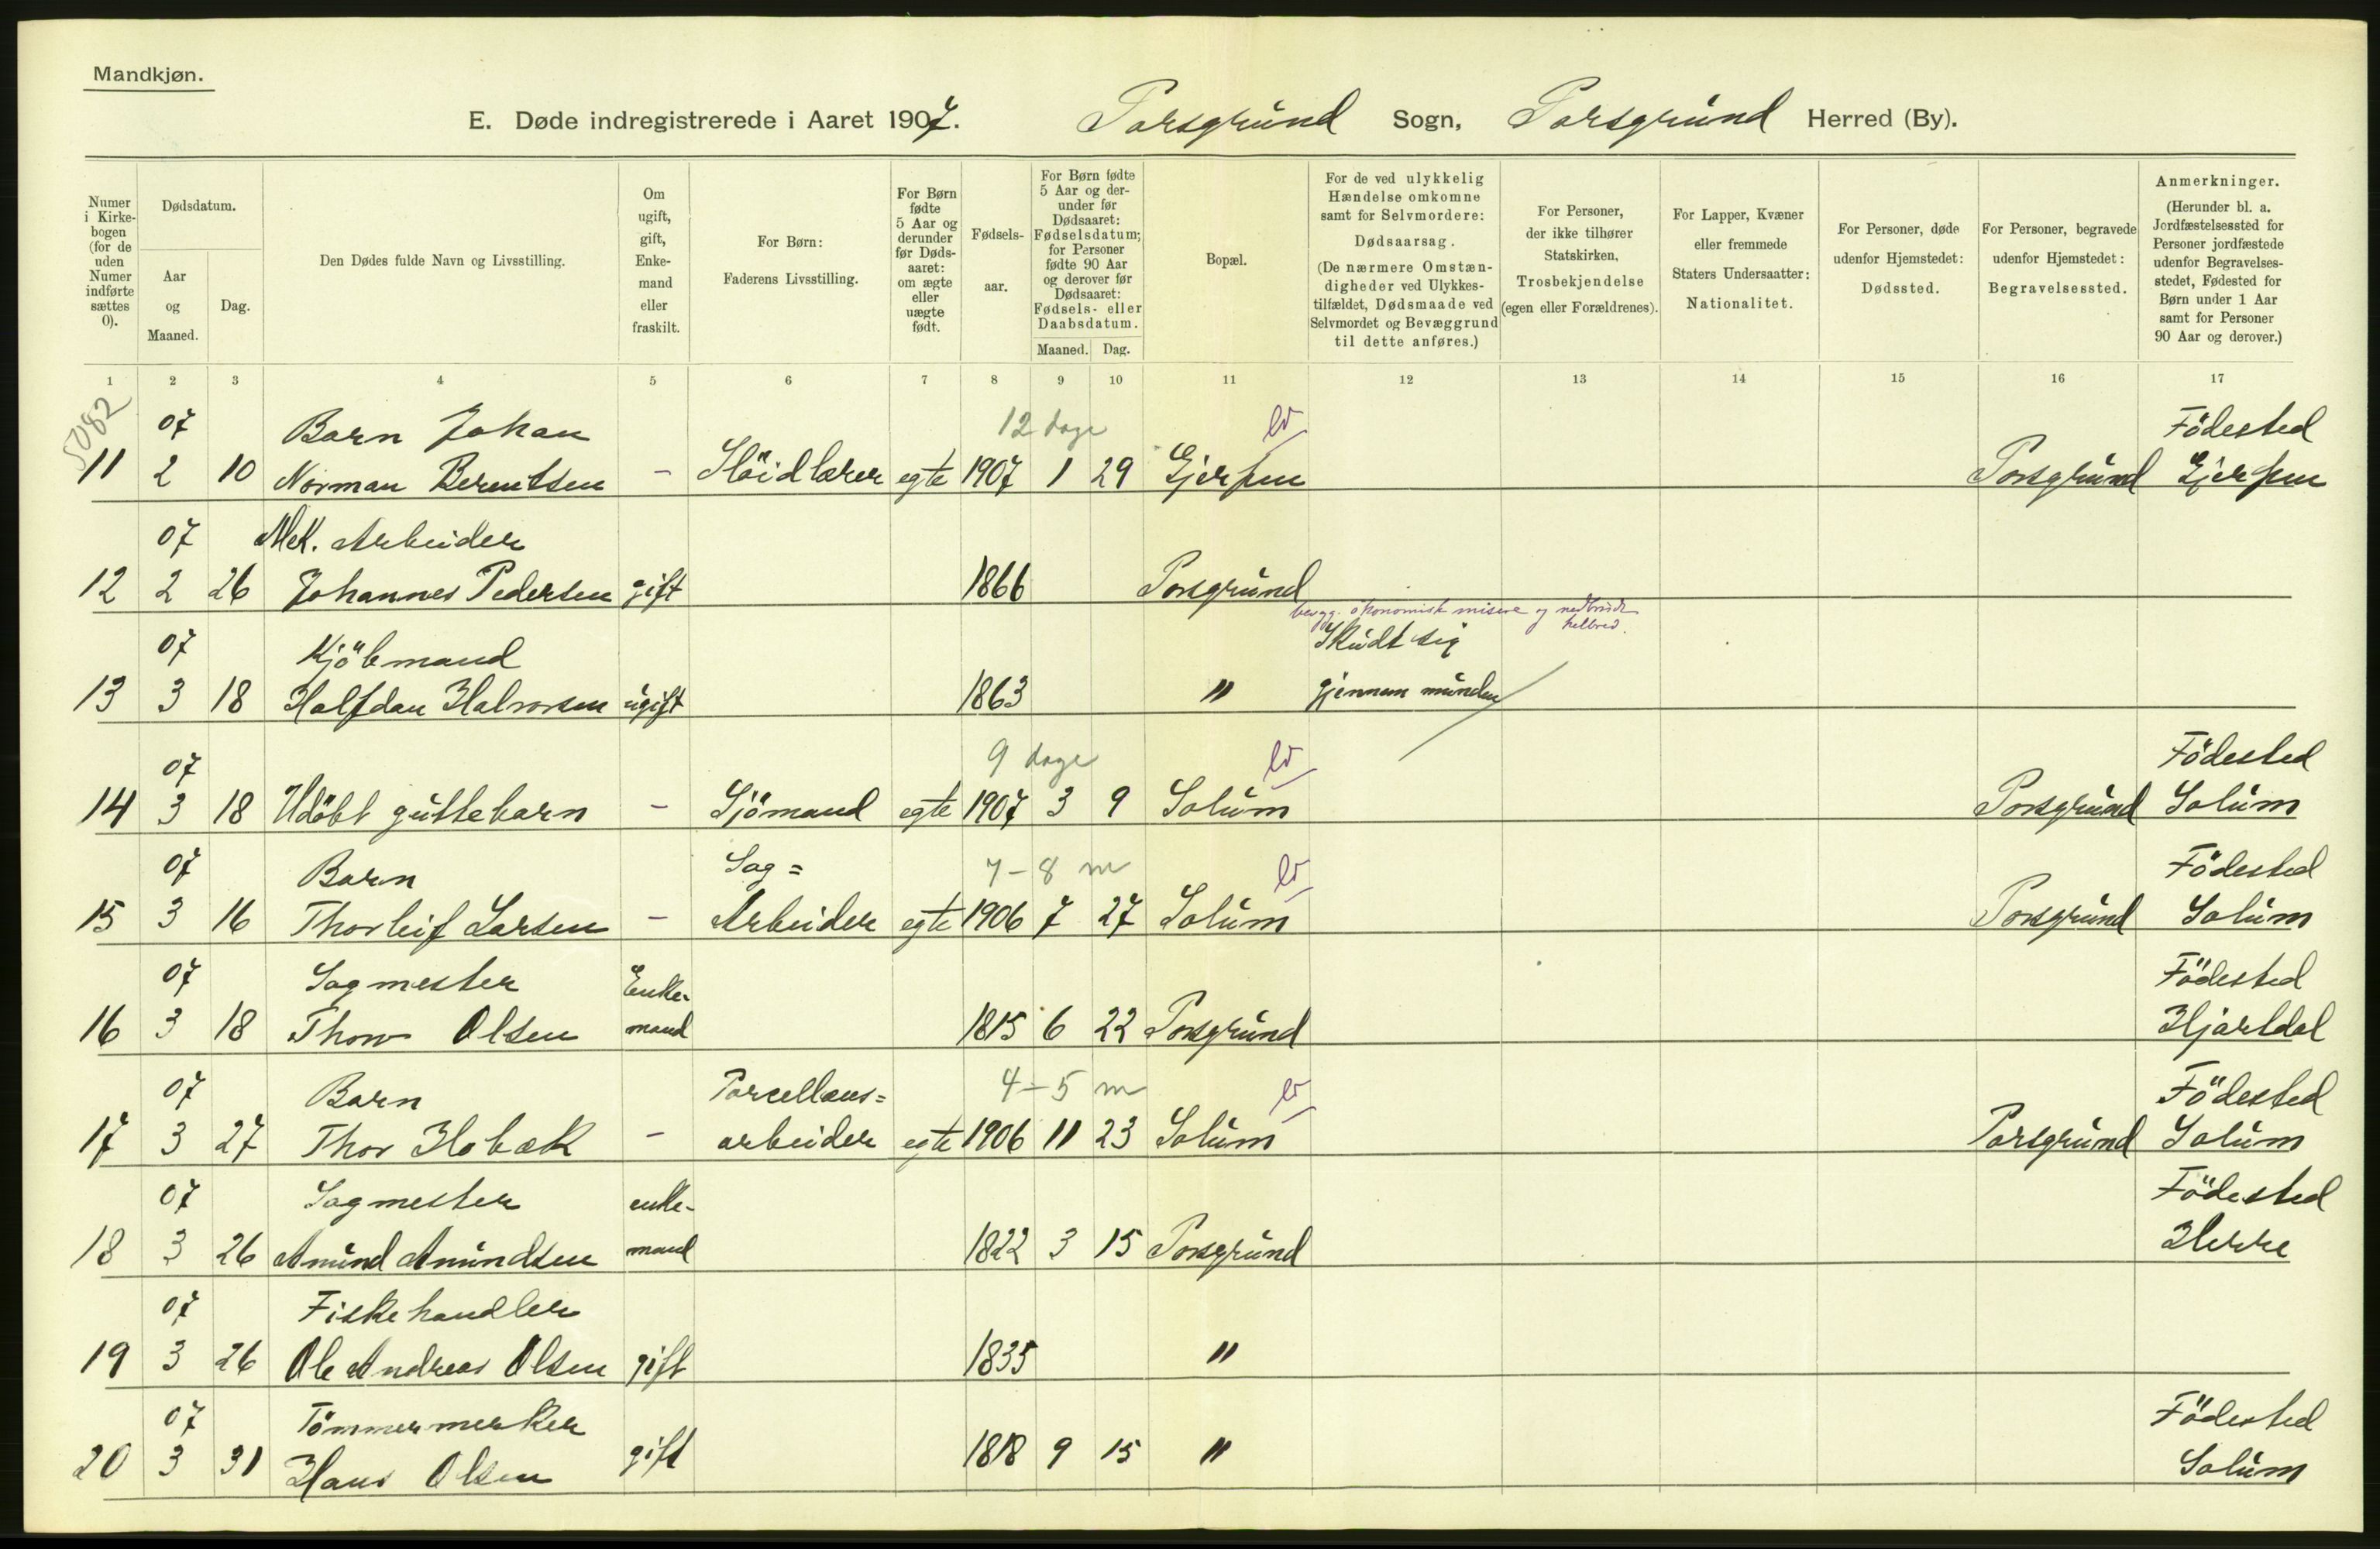 Mandkjøn.
E. Døde indregistrerede i Aaret 1907. Porsgrund Sogn, Porsgrund Herred (By).
Numer i Kirkebogen (for de uden Numer indførte sættes 0).
Dødsdatum.
Aar og Maaned.
Dag.
Den Dødes fulde Navn og Livsstilling.
Om ugift, gift, Enkemand eller fraskilt.
For Børn: Faderens Livsstilling.
For Børn fødte 5 Aar og derunder før Dødsaaret: om ægte eller uægte født.
Fødselsaar.
For Børn fødte 5 Aar og derunder før Dødsaaret: Fødselsdatum; for Personer fødte 90 Aar og derover før Dødsaaret: Fødsels- eller Daabsdatum.
Maaned. Dag.
Bopæl.
For de ved ulykkelig Hændelse omkomne samt for Selvmordere: Dødsaarsag. (De nærmere Omstændigheder ved Ulykkestilfældet, Dødsmaade ved Selvmordet og Bevæggrund til dette anføres.)
For Personer, der ikke tilhører Statskirken, Trosbekjendelse (egen eller Forældrenes).
For Lapper, Kvæner eller fremmede Staters Undersaatter: Nationalitet.
For Personer, døde udenfor Hjemstedet: Dødssted.
For Personer, begravede udenfor Hjemstedet: Begravelsessted.
Anmerkninger. (Herunder bl. a. Jordfæstelsessted for Personer jordfæstede udenfor Begravelsesstedet, Fødested for Børn under 1 Aar samt for Personer 90 Aar og derover.)
1 2 3 4 5 6 7 8 9 10 11 12 13 14 15 16 17
5082
07 Barn Johan 12 dage Födested
11 2 10 Norman Berentsen - Slöidlærer egte 1907 1 29 Gjerpen Porsgrund Gjerpen
07 Mek. Arbeider
12 2 26 Johannes Pedersen gift 1866 Porsgrund
bevgg. økonomisk misere og nedbrudt helbred.
07 Kjöbmand Skudt sig
13 3 18 Halfdan Halvorsen ugift 1863 " gjennem munden
07 9 dage Födested
14 3 18 Udöbt guttebarn - Sjömand egte 1907 3 9 Solum Porsgrund Solum
07 Barn Sag= 7-8 m Födested
15 3 16 Thorleif Larsen - Arbeider egte 1906 7 27 Solum Porsgrund Solum
07 Sagmester Enke- Födested
16 3 18 Thor Olsen mand 1815 6 22 Porsgrund Hjartdal
07 Barn Porcellæns= 4-5 m Födested
17 3 27 Thor Hobæk - arbeider egte 1906 11 23 Solum Porsgrund Solum
07 Sagmester enke- Födested
18 3 26 Amund Amundsen mand 1822 3 15 Porsgrund Herre
07 Fiskehandler
19 3 26 Ole Andreas Olsen gift 1835 "
07 Tömmermerker Födested
20 3 31 Hans Olsen gift 1818 9 15 " Solum